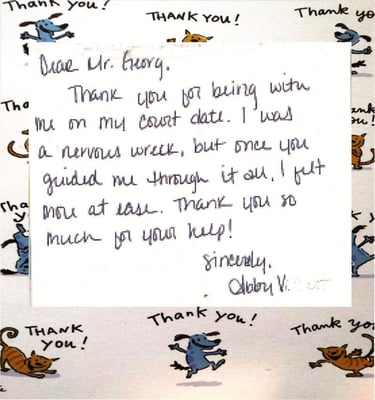 Thank You!
THANK YOU!
Thank yo
Dear Mr. Georg.
Thank you for being with
me on my court date. I was
a nervous wreck, but once you
guided me through it all, I felt
more at ease. Thank you so
much for your help!
Sincerely,
Abby V.
THANK
YOU!
Thank you!
Thank you